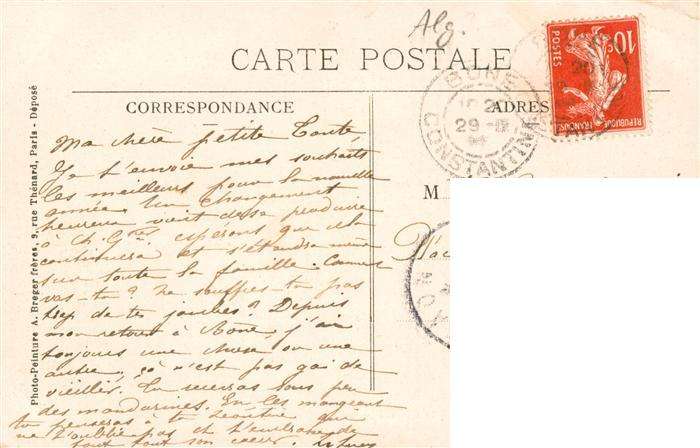 Alg.
CARTE POSTALE
CORRESPONDANCE
ADRES
Photo-Peinture A. Breger frères, 9, rue Thénard, Paris - Déposé
10c
POSTES
REPUBLIQUE FRANÇAISE
BONE
29
CONSTANTINE
M
Ma chère petite Tante,
Je t'envoie mes souhaits
les meilleurs pour la nouvelle
année. Un changement
heureux vient de se produire
à espérons que cela
continuera et s'étendra même
sur toute la famille. Comment
vas-tu? ne souffres-tu pas
trop de tes jambes? Depuis
mon retour à Bône, j'ai
toujours une chose ou une
autre, çà n'est pas gai de
vieillir. Tu recevras sous peu
des mandarines. En les mangeant
tu penseras à ta qui
ne t'oublie pas et t'embrasse de
tout tout son coeur.